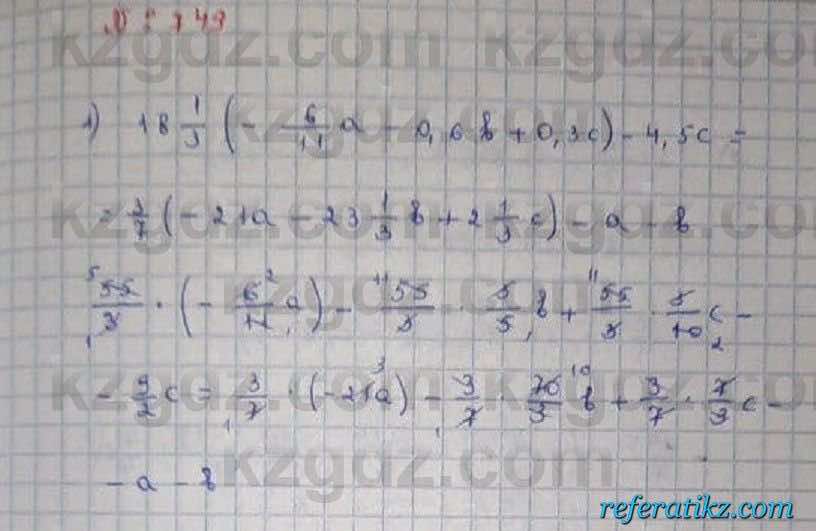 № 749
1) 18 1/3 (- 6/11 a - 0,6 b + 0,3c) - 4,5c =
= 3/7 (- 21a - 23 1/3 b + 2 1/3 c) - a - b
55/3 · (- 6/11 a) - 55/3 · 3/5 b + 55/3 · 3/10 c -
- 9/2 c = 3/7 · (-21a) - 3/7 · 70/3 b + 3/7 · 7/3 c -
- a - b
kzgdz.com
referatikz.com